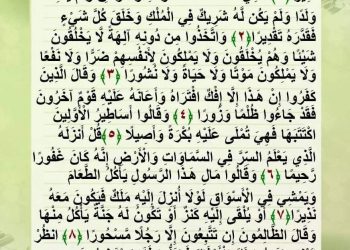 وَلَدًا وَلَمْ يَكُن لَّهُ شَرِيكٌ فِي الْمُلْكِ وَخَلَقَ كُلَّ شَيْءٍ
فَقَدَّرَهُ تَقْدِيرًا ﴿٢﴾ وَاتَّخَذُوا مِن دُونِهِ آلِهَةً لَّا يَخْلُقُونَ
شَيْئًا وَهُمْ يُخْلَقُونَ وَلَا يَمْلِكُونَ لِأَنفُسِهِمْ ضَرًّا وَلَا نَفْعًا
وَلَا يَمْلِكُونَ مَوْتًا وَلَا حَيَاةً وَلَا نُشُورًا ﴿٣﴾ وَقَالَ الَّذِينَ
كَفَرُوا إِنْ هَٰذَا إِلَّا إِفْكٌ افْتَرَاهُ وَأَعَانَهُ عَلَيْهِ قَوْمٌ آخَرُونَ
فَقَدْ جَاءُوا ظُلْمًا وَزُورًا ﴿٤﴾ وَقَالُوا أَسَاطِيرُ الْأَوَّلِينَ
اكْتَتَبَهَا فَهِيَ تُمْلَىٰ عَلَيْهِ بُكْرَةً وَأَصِيلًا ﴿٥﴾ قُلْ أَنزَلَهُ
الَّذِي يَعْلَمُ السِّرَّ فِي السَّمَاوَاتِ وَالْأَرْضِ إِنَّهُ كَانَ غَفُورًا
رَّحِيمًا ﴿٦﴾ وَقَالُوا مَالِ هَٰذَا الرَّسُولِ يَأْكُلُ الطَّعَامَ
وَيَمْشِي فِي الْأَسْوَاقِ لَوْلَا أُنزِلَ إِلَيْهِ مَلَكٌ فَيَكُونَ مَعَهُ
نَذِيرًا ﴿٧﴾ أَوْ يُلْقَىٰ إِلَيْهِ كَنزٌ أَوْ تَكُونُ لَهُ جَنَّةٌ يَأْكُلُ مِنْهَا
وَقَالَ الظَّالِمُونَ إِن تَتَّبِعُونَ إِلَّا رَجُلًا مَّسْحُورًا ﴿٨﴾ انظُرْ